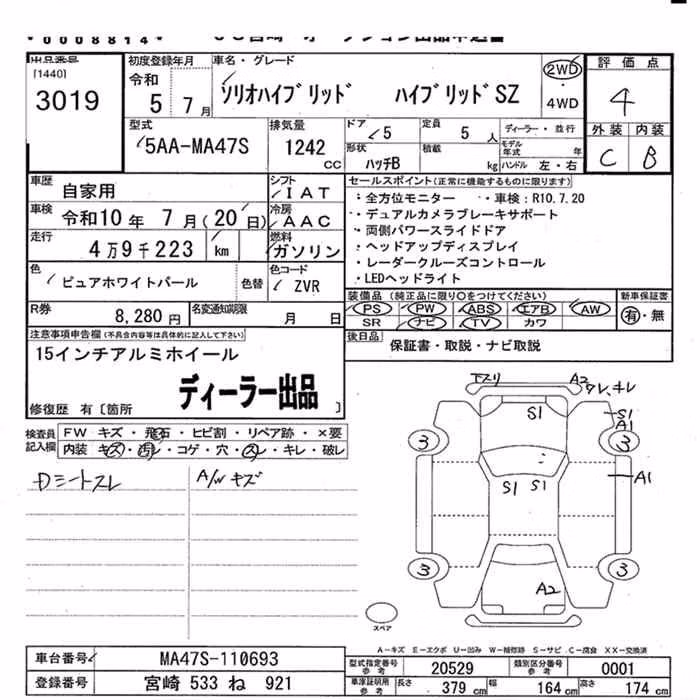 *0008814*
出品番号
[1440]
3019
初度登録年月
令和
5 7月
車名・グレード
ソリオハイブリッド ハイブリッドSZ
2WD
・
4WD
評価点
4
外装 内装
C B
型式
5AA-MA47S
排気量
1242
CC
ドア
5
定員
5 人
ディーラー・並行
モデル年式 年
形状
ハッチB
積載
kg
ハンドル 左・右
車歴
自家用
シフト
IAT
車検
令和10年 7月(20日)
冷房
AAC
走行
4万9千223 km
燃料
ガソリン
色
ピュアホワイトパール
色替
色コード
ZVR
R券
8,280円
名変通知期限
月 日
セールスポイント(正常に機能するものに限ります)
・全方位モニター ・車検:R10.7.20
・デュアルカメラブレーキサポート
・両側パワースライドドア
・ヘッドアップディスプレイ
・レーダークルーズコントロール
・LEDヘッドライト
装備品(純正品に限り○をつけてください)
新車保証書
PS PW ABS エアB AW
SR ナビ TV カワ
有・無
後日品
保証書・取説・ナビ取説
注意事項申告欄(不具合内容等は具体的に記入して下さい)
15インチアルミホイール
ディーラー出品
修復歴 有〔箇所 〕
検査員
記入欄
FW キズ・飛石・ヒビ割・リペア跡・×要
内装 キズ・汚レ・コゲ・穴・スレ・キレ・破レ
Dシートスレ
A/Wキズ
A2
スレ、キレ
S1
S1
A1
3
3
A1
S1 S1
3
3
A2
スペア
A-キズ E-エクボ U-凹み W-補修跡 S-サビ C-腐食 XX-交換済
車台番号
MA47S-110693
登録番号
宮崎 533 ね 921
型式指定番号
参考
20529
類別区分番号
参考
0001
車庫証明用
参考
長さ 379 cm
幅 164 cm
高さ 174 cm